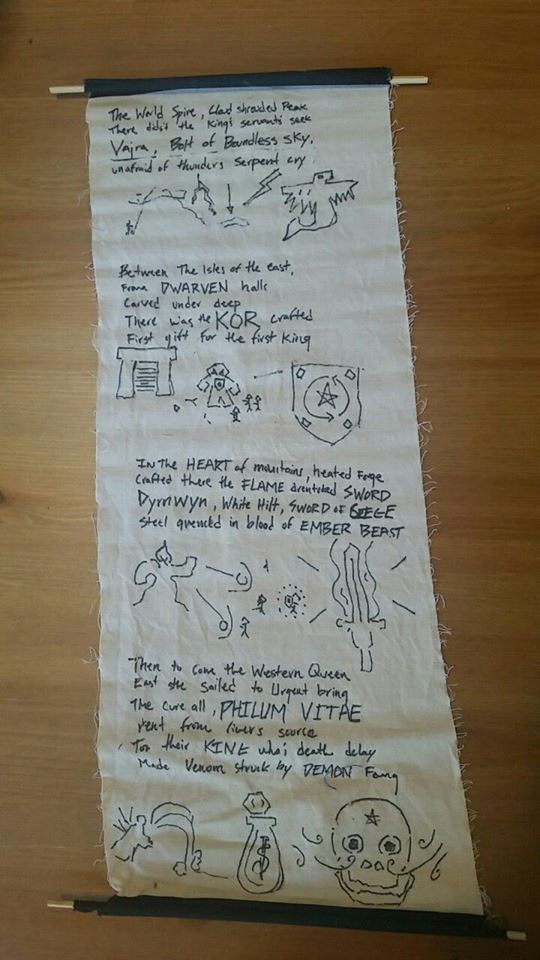 The World Spire, Cloud shrouded Peak
There didst the King's servants seek
Vajra, Bolt of Boundless sky,
unafraid of thunders serpent cry,
Between The Isles of the east,
From DWARVEN halls
Carved under deep
There was the KOR crafted
First gift for the first King
In The HEART of mountains, heated Forge
Crafted there the FLAME drentched SWORD
Dyrnwyn, White Hilt, SWORD OF SIEGE
steel quenced in blood of EMBER BEAST
Then to come the Western Queen
East she sailed to Urgent bring
The cure all, PHILUM VITAE
rent from rivers source
For their KING who's death delay
Made Venom struck by DEMON Fang